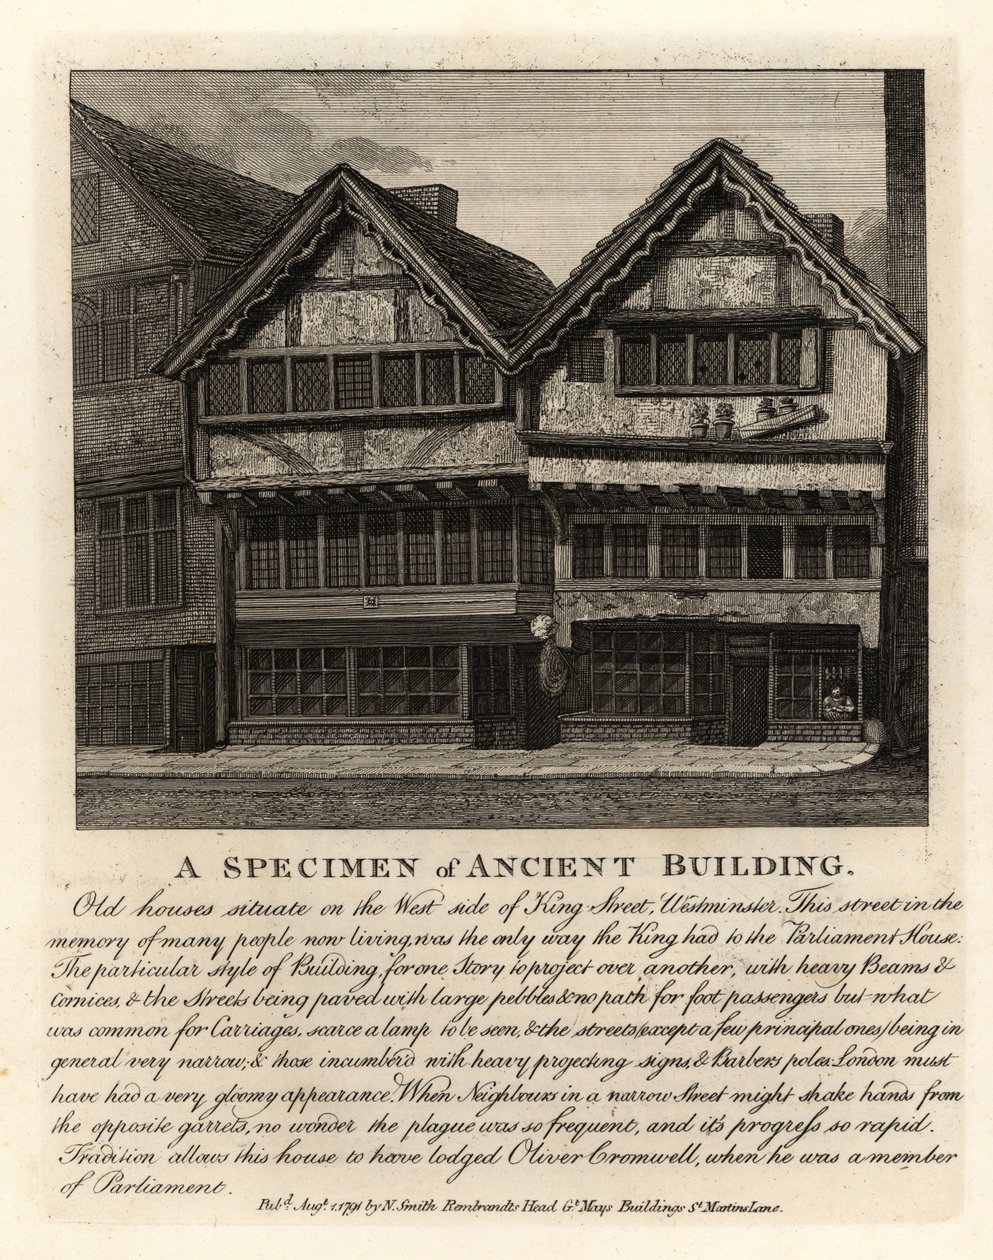 A SPECIMEN of ANCIENT BUILDING.
Old houses situate on the West side of King Street, Westminster. This street in the
memory of many people now living, was the only way the King had to the Parliament House:
The particular style of Building, for one Story to project over another, with heavy Beams &
Cornices, & the Streets being paved with large pebbles & no path for foot passengers but what
was common for Carriages, scarce a lamp to be seen, & the streets (except a few principal ones) being in
general very narrow; & those incumber'd with heavy projecting signs, & Barbers poles. London must
have had a very gloomy appearance. When Neighbours in a narrow Street might shake hands from
the opposite garrets, no wonder the plague was so frequent, and it's progress so rapid.
Tradition allows this house to have lodged Oliver Cromwell, when he was a member
of Parliament.
Pubd. Augt. 1. 1791 by N. Smith Rembrandts Head Gt. Mays Buildings St. Martins Lane.